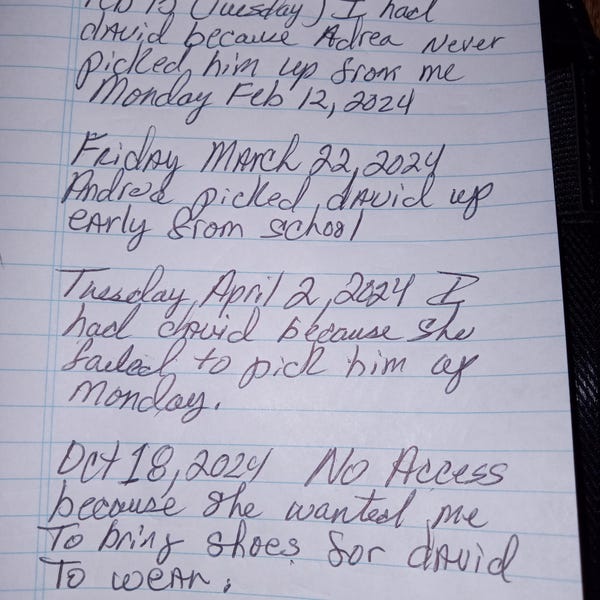 Feb 13 (Tuesday) I had
david because Adrea Never
picked him up from me
Monday Feb 12, 2024
Friday March 22, 2024
Andrea picked david up
early from school
Tuesday April 2, 2024 I
had david because she
failed to pick him up
Monday.
Oct 18, 2024 No Access
because she wanted me
To bring shoes for david
To wear.